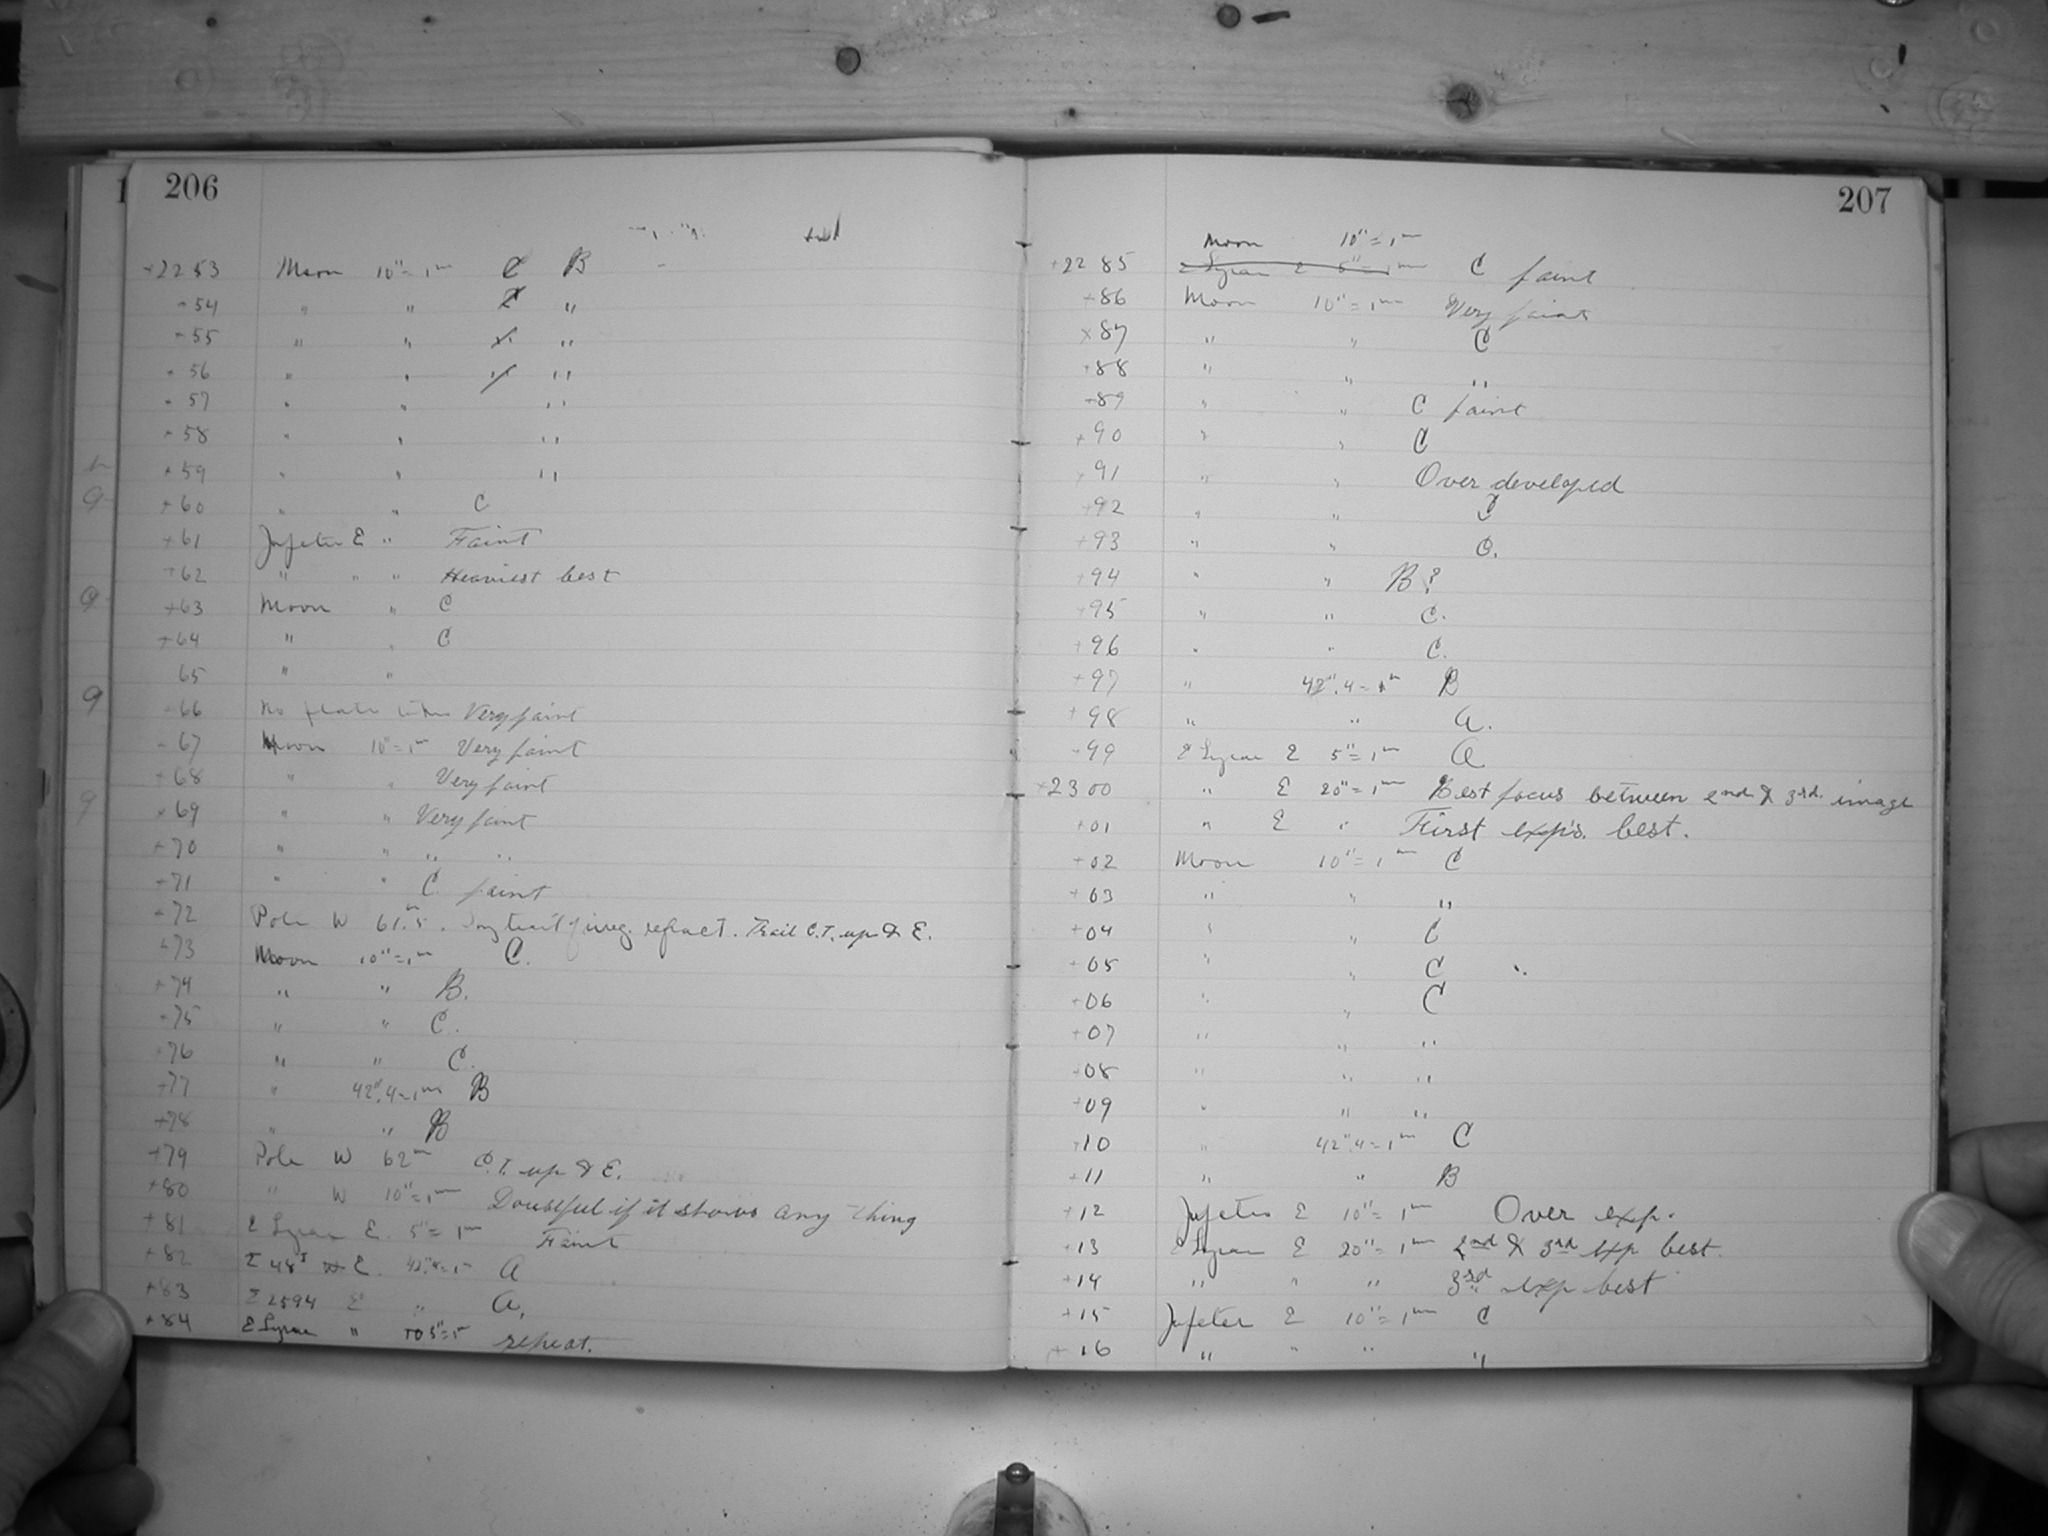 206
+2253 Moon 10"=1m C B
+54 " " C "
+55 " " " "
+56 " " " "
+57 " " "
+58 " " "
+59 " " "
+60 " " C
+61 Jupeter E " Faint
+62 " " " Heaviest best
+63 Moon " C
+64 " " C
65 " "
+66 No plate Very faint
+67 Moon 10"=1m Very faint
+68 " " Very faint
+69 " " Very faint
+70 " " " "
+71 " " C faint
+72 Pole W 61m.5. refract. Trail C.T. up & E.
+73 Moon 10"=1m C.
+74 " " B.
+75 " " C.
+76 " " C.
+77 " 42".4=1m B
+78 " " B
+79 Pole W 62m C.T. up & E.
+80 " W 10"=1m Doubtful if it shows any thing
+81 ε Lyrae E. 5"=1m Faint
+82 Σ 485 E. 42".4=1m A
+83 Σ 2594 E " A.
+84 ε Lyrae " 5"=1m repeat.
207
Moon 10"=1m
+2285 ε Lyrae E 5"=1m C faint
+86 Moon 10"=1m Very faint
+87 " " C
+88 " " "
+89 " " C faint
+90 " " C
+91 " " Over developed
+92 " " C
+93 " " C.
+94 " " B?
+95 " " C.
+96 " " C.
+97 " 42".4=1m B
+98 " " A.
+99 ε Lyrae E 5"=1m A
+2300 " E 20"=1m Best focus between 2nd & 3rd. image
+01 " E " First exp's. best.
+02 Moon 10"=1m C
+03 " " "
+04 " " C
+05 " " C
+06 " " C
+07 " " "
+08 " " "
+09 " " "
+10 " 42".4=1m C
+11 " " B
+12 Jupeter E 10"=1m Over exp.
+13 ε Lyrae E 20"=1m 2nd & 3rd exp best.
+14 " " " 3rd exp best
+15 Jupeter E 10"=1m C
+16 " " " "